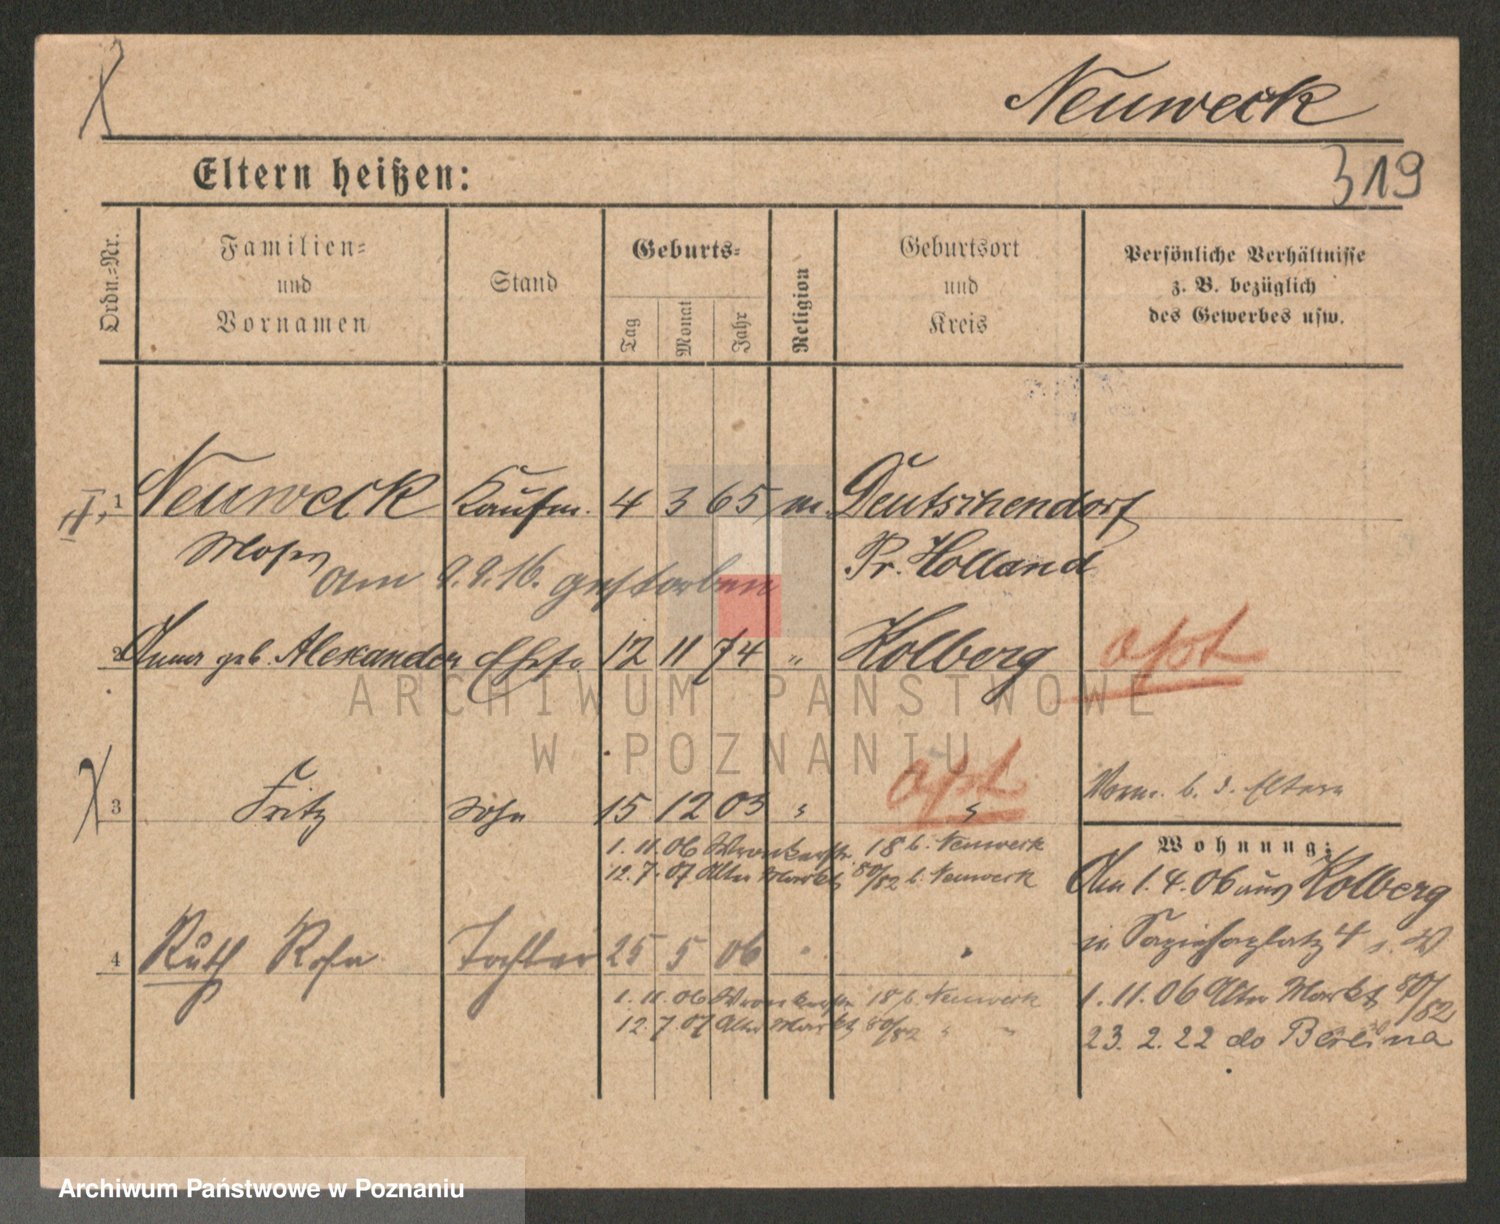 Neuweck
Eltern heißen:
319
Ordn.=Nr.
Familien=
und
Vornamen
Stand
Geburts=
Tag
Monat
Jahr
Religion
Geburtsort
und
Kreis
Persönliche Verhältnisse
z. B. bezüglich
des Gewerbes usw.
1 Neuweck Kaufm. 4 3 65 m. Deutschendorf
Moses Pr. Holland
am 9.9.16. gestorben
2 Anna geb. Alexander Ehefr. 12 11 74 " Kolberg opt
opt
3 Fritz Sohn 15 12 03 " " b. d. Eltern
1. 11. 06 Wronkerstr. 18 b. Neuweck
12. 7. 07 Alter Markt 80/82 b. Neuweck
Wohnung:
Am 1. 4. 06 aus Kolberg
n. Sapiehaplatz 4
4 Ruth Rosa Tochter 25 5 06 " "
1. 11. 06 Wronkerstr. 18 b. Neuweck
12. 7. 07 Alter Markt 80/82 " "
1. 11. 06 Alter Markt 80/82
23. 2. 22 do Berlina
ARCHIWUM PAŃSTWOWE
W POZNANIU
Archiwum Państwowe w Poznaniu